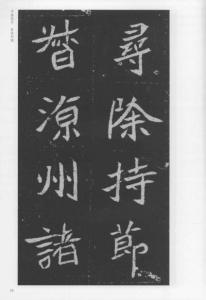 尋除持節
督源州諸